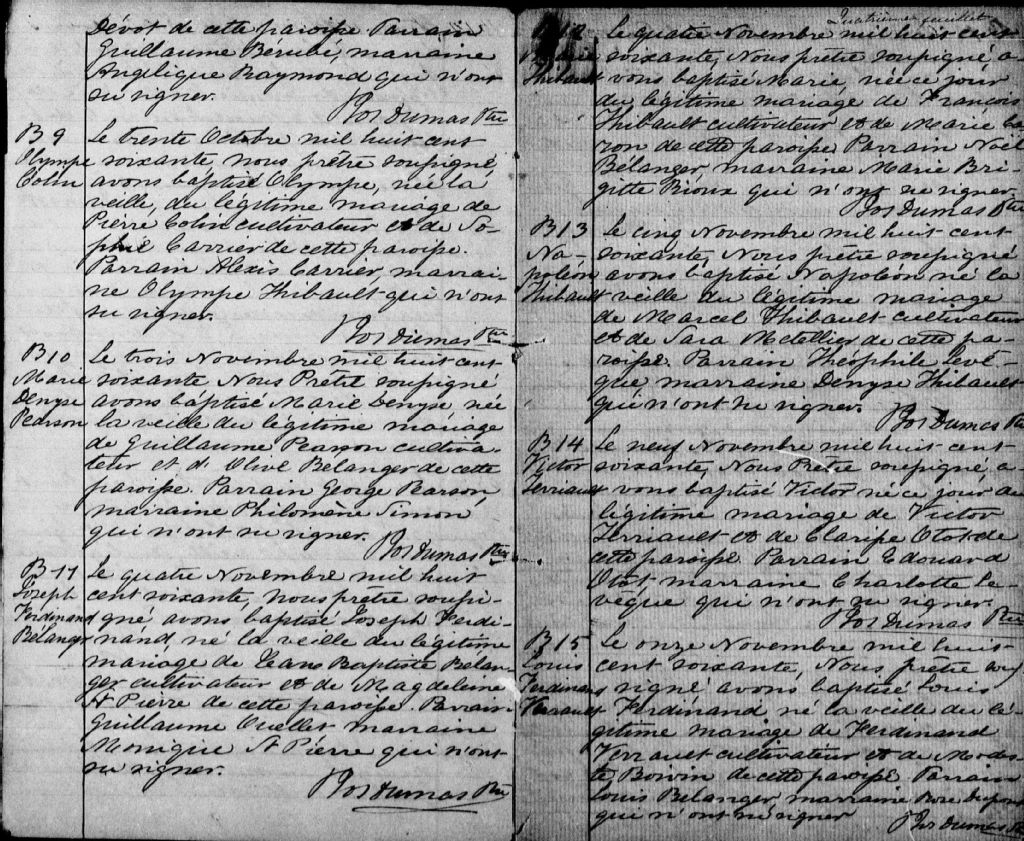 Dévot de cette paroisse. Parrain
Guillaume Berubé, marraine
Angelique Raymond qui n'ont
su signer.
Jos Dumas Ptre
B 9
Olympe
Colin
Le trente Octobre mil huit cent
soixante, nous prêtre soussigné,
avons baptisé Olympe, née la
veille, du légitime mariage de
Pierre Colin cultivateur et de So-
phie Carrier de cette paroisse.
Parrain Alexis Carrier, marrai-
ne Olympe Thibault qui n'ont
su signer.
Jos Dumas Ptre
B 10
Marie
Denyse
Pearson
Le trois Novembre mil huit cent
soixante Nous Prêtre soussigné
avons baptisé Marie Denyse, née
la veille du légitime mariage
de Guillaume Pearson cultiva-
teur et d'Olive Bélanger de cette
paroisse. Parrain George Pearson,
marraine Philomène Simon
qui n'ont su signer.
Jos Dumas Ptre
B-11
Joseph
Ferdinand
Bélanger
Le quatre Novembre mil huit
cent soixante, nous prêtre soussi-
gné avons baptisé Joseph Ferdi-
nand, né la veille du légitime
mariage de Jean Baptiste Bélan-
ger cultivateur et de Magdeleine
St Pierre de cette paroisse. Parrain
Guillaume Ouellet marraine
Monique St Pierre qui n'ont
su signer.
Jos Dumas Ptre
Quatrième feuillet
B 12
Marie
Thibault
Le quatre Novembre mil huit cent
soixante, Nous prêtre soussigné, a-
vons baptisé Marie, née ce jour
du légitime mariage de François
Thibault cultivateur et de Marie Ca-
ron de cette paroisse Parrain Noël
Bélanger, marraine Marie Bri-
gitte Rioux qui n'ont su signer.
Jos Dumas Ptre
B 13
Na-
poléon
Thibault
Le cinq Novembre mil huit cent
soixante, Nous prêtre soussigné
avons baptisé Napoléon né la
veille du légitime mariage
de Marcel Thibault cultivateur
et de Sara Metellier de cette pa-
roisse. Parrain Théophile Levê-
que marraine Denyse Thibault
qui n'ont su signer.
Jos Dumas Ptre
B 14
Victor
Terriault
Le neuf Novembre mil huit cent
soixante, Nous Prêtre soussigné, a-
vons baptisé Victor né ce jour du
légitime mariage de Victor
Terriault et de Clarisse Otot de
cette paroisse Parrain Edouard
Otot marraine Charlotte Le-
vêque qui n'ont su signer.
Jos Dumas Ptre
B 15
Louis
Ferdinand
Le onze Novembre mil huit
cent soixante, Nous prêtre sous
signé avons baptisé Louis
Ferdinand né la veille du lé-
gitime mariage de Ferdinand
Verrault cultivateur et de Modes-
te Boivin de cette paroisse Parrain
Louis Bélanger, marraine Rose Dupont
qui n'ont su signer
Jos Dumas Ptre